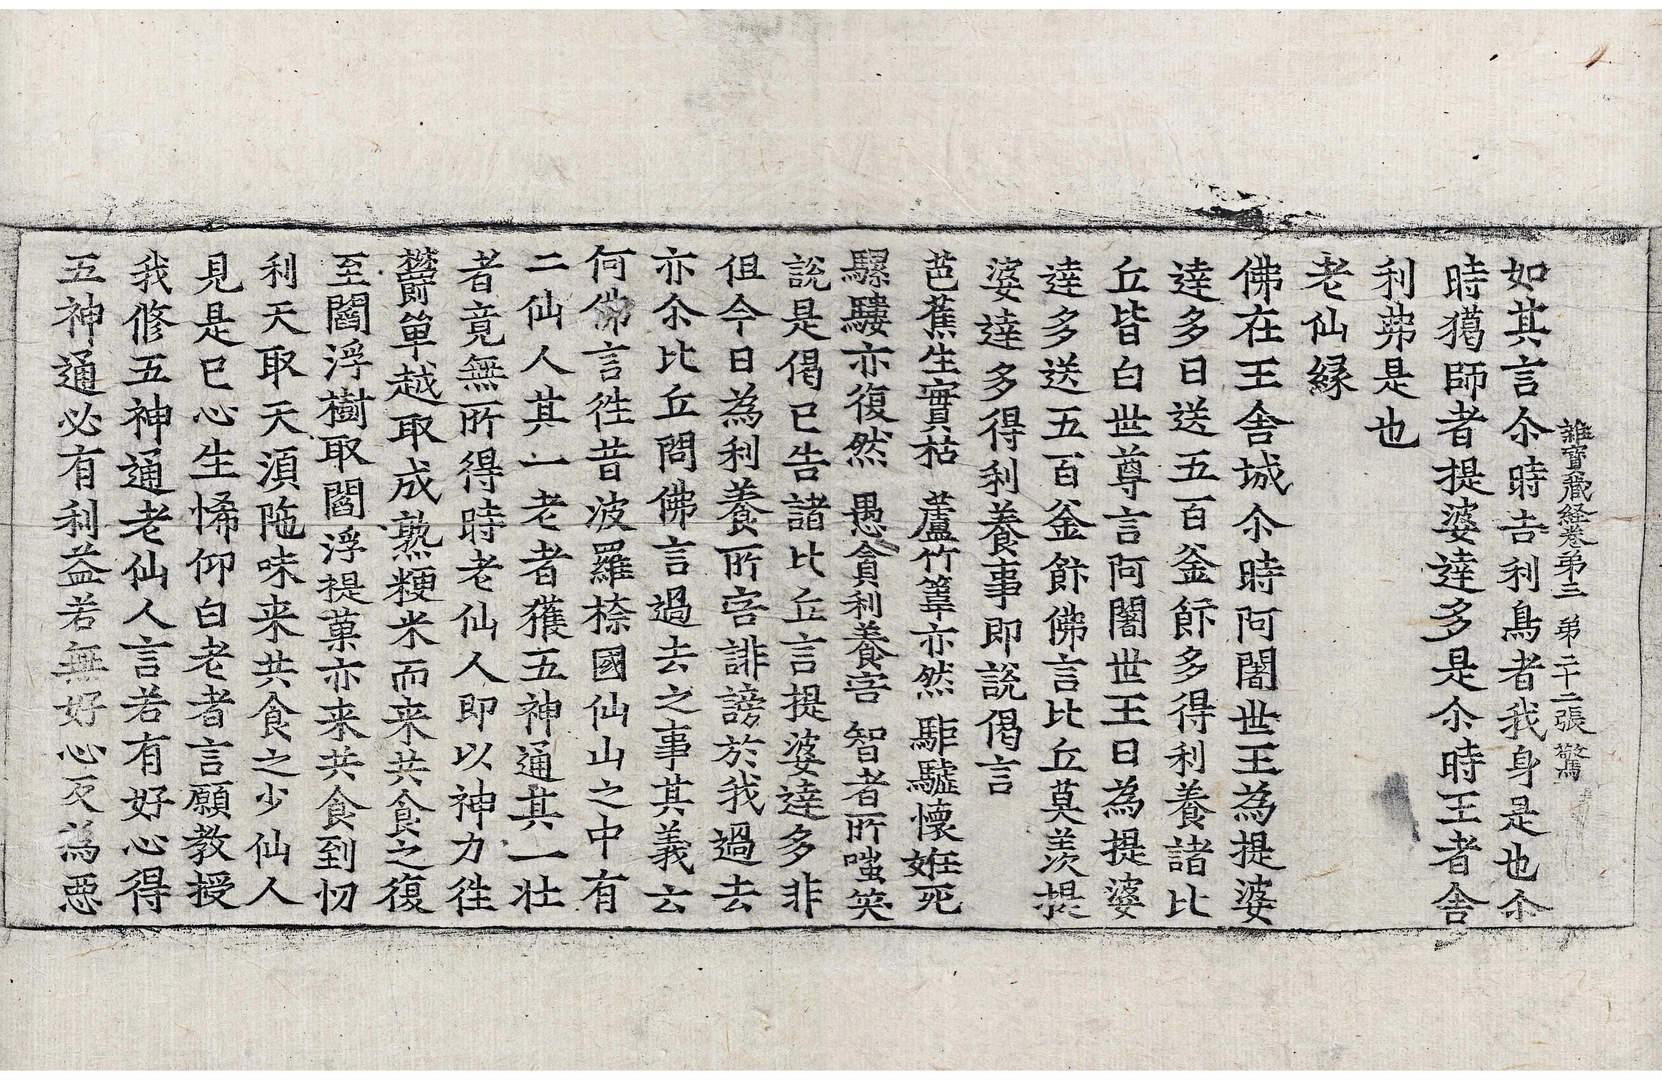 雜寶藏經卷第三　第二十二張　驚
如其言尒時吉利鳥者我身是也尒
時獦師者提婆達多是尒時王者舍
利弗是也
老仙縁
佛在王舍城尒時阿闍世王為提婆
達多日送五百釜飰多得利養諸比
丘皆白世尊言阿闍世王日為提婆
達多送五百釜飰佛言比丘莫羨提
婆達多得利養事即說偈言
芭蕉生實枯　蘆竹𥯤亦然　駏驉懷妊死
騾䮫亦復然　愚貪利養害　智者所嗤笑
說是偈已告諸比丘言提婆達多非
但今日為利養所害誹謗於我過去
亦尒比丘問佛言過去之事其義云
何佛言徃昔波羅㮈國仙山之中有
二仙人其一老者獲五神通其一壮
者竟無所得時老仙人即以神力徃
欝單越取成熟粳米而来共食之復
至閻浮樹取閻浮提菓亦来共食到忉
利天取天湏陁味来共食之少仙人
見是已心生悕仰白老者言願教授
我修五神通老仙人言若有好心得
五神通必有利益若無好心反為𢙣